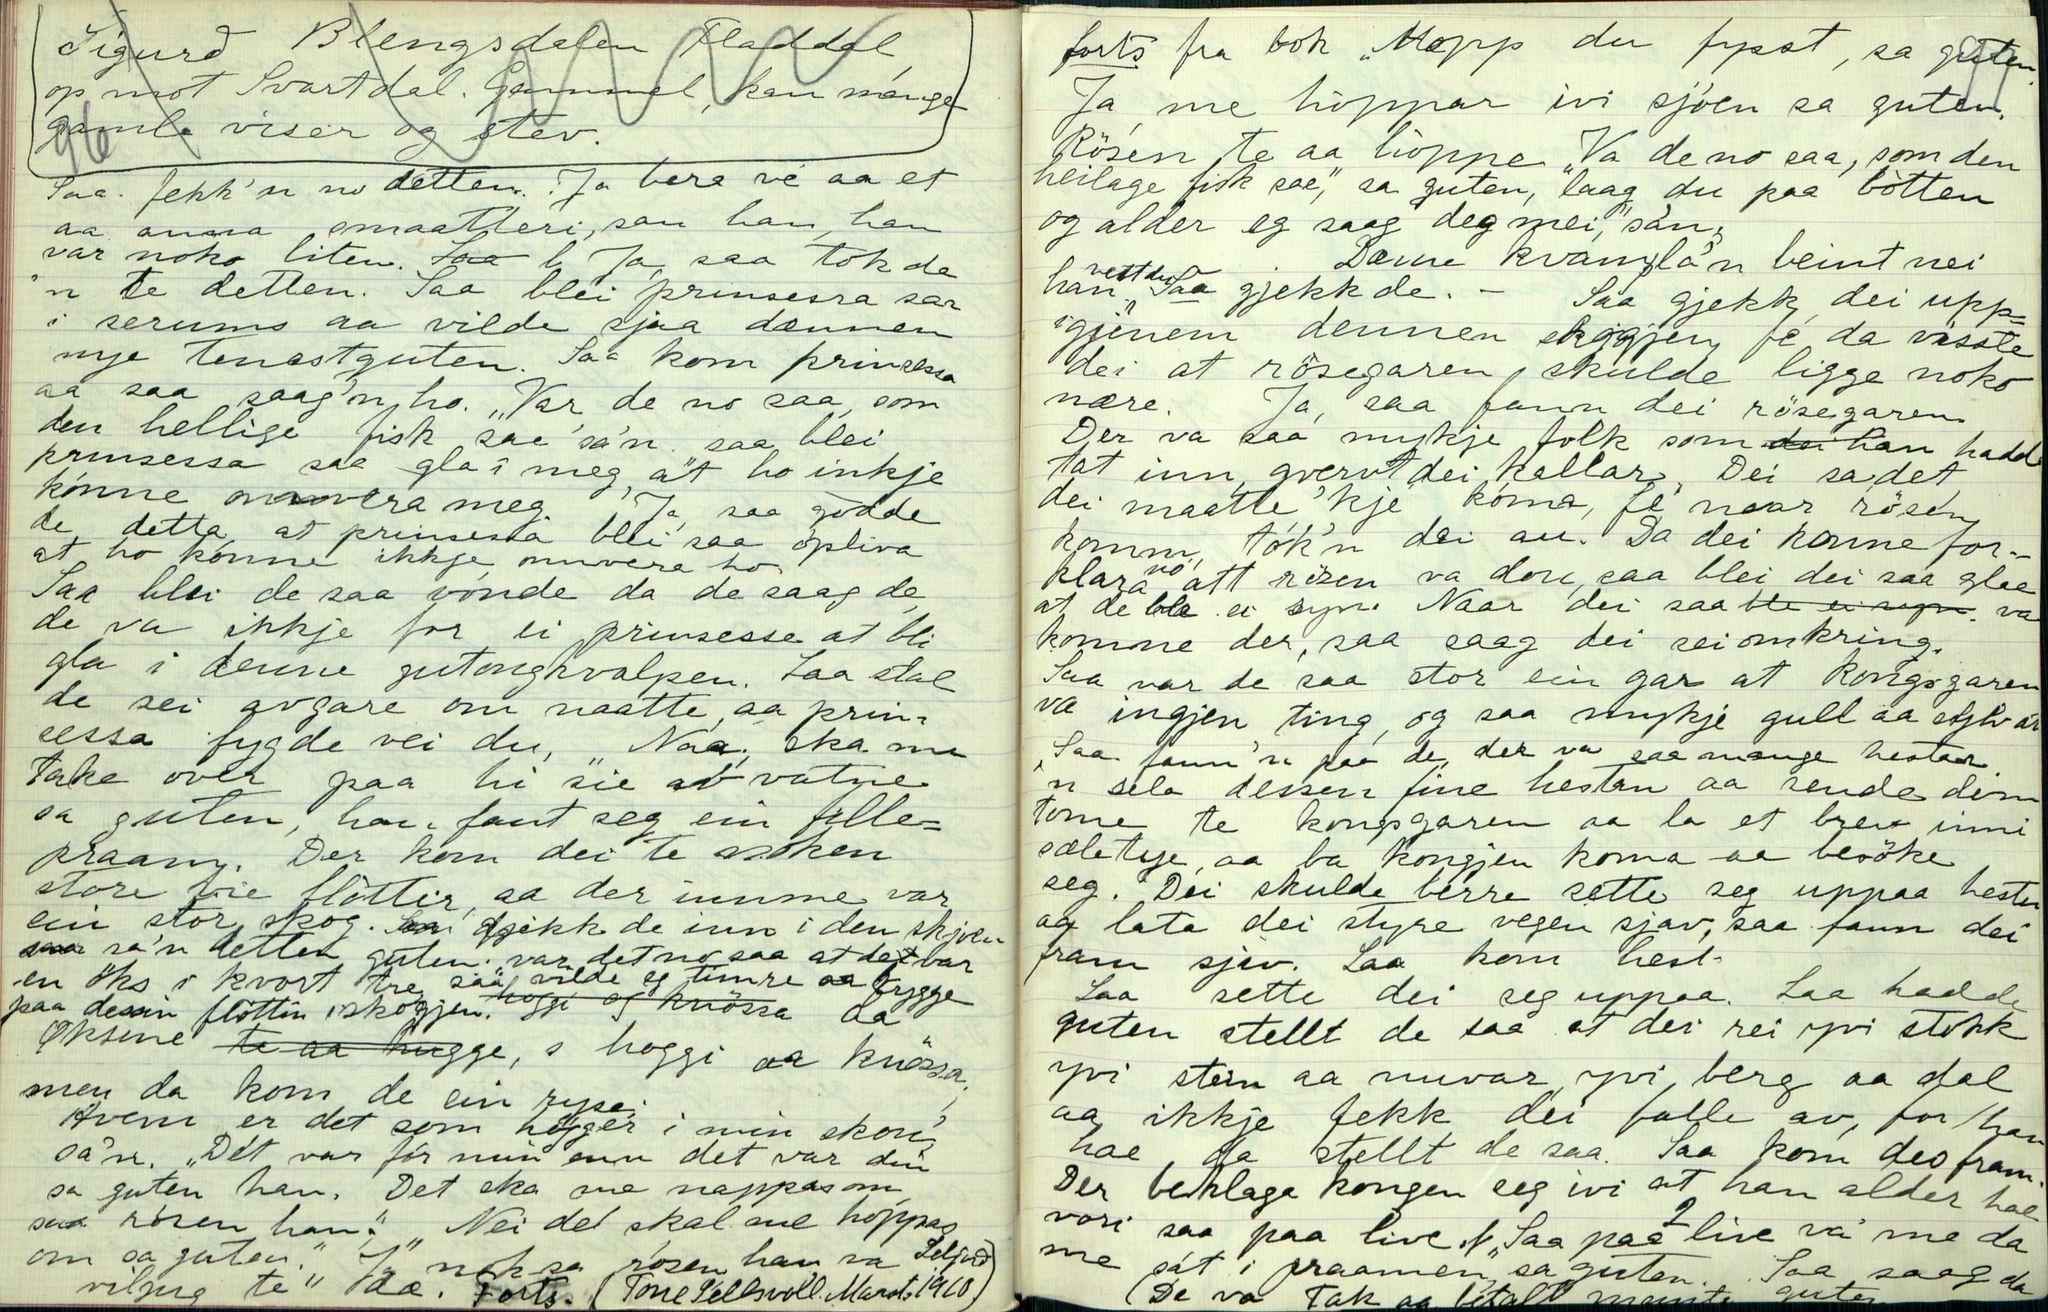 Sigurd Blengsdalen Fladdal
op mot Svartdal. Gammel, kan mange
gamle viser og stev.
96
Saa fekk'n no detten. Ja bera ve aa et
aa anna smaatteri, san han, han
var noko liten. Saa b Ja, saa tok de
'n te detten. Saa blei prinsessa sar
i serums aa vilde sjaa dennen
nye tenestguten. Saa kom prinsessa
aa saa saag'n ho. "Var de no saa, som
den hellige fisk sae" sa'n "saa blei
prinsessa saa gla i meg, at ho inkje
konne omvera meg. Ja, saa godde
de detta, at prinsessa blei saa opliva
at ho konne ikkje umvera ho.
Saa blei de saa vonde da de saag de,
de va ikkje for ei prinsesse at bli
gla i denne gutonghvalpen. Saa stal
de sei avgare om naatte, aa prin-
sessa fygde vei du, "Naa, ska me
take over paa hi sie av vatne
sa guten, han fant seg ein fille-
praam. Der kom dei te noken
store vie flotter, aa der inume var
ein stor skog. Saa gjekk de inn i den skjoen
saa sa'n detten guten. var det no saa at det var
en öks i kvort tre, saa vilde eg timre aa bygge
paa dessin flottin i skogjen. hoggi og knössa aa
Øksene te aa hugge, s hoggi aa knössa,
men da kom de ein ryse.
Hvem er det som högger i min skou,
sa'n. "Det var för min enn det var din
sa guten han. Det ska me nappas om,
saa rösen han". "Nei det skal me hoppas
om sa guten." "Ja nok sa rösen han va Seljord
viljug te" dæ. Forts. (Tone Sellsvoll. Marst. 1910)
forts fra bok "Hopp du fysst, sa guten.
Ja, me hoppar ivi sjoen sa guten.
Rösen te aa hoppe. "Va de no saa, som den
heilage fisk sae," sa guten, "laag du paa botten
og alder eg saag deg mei," sa'n.
Denne kvamla'n beint nei
han vettdu. Saa gjekk de. - Saa gjekk dei upp-
igjönem dennen skogjen, fe da visste
dei at rösegaren skulde ligge noko
nære. Ja, saa fann dei rösegaren.
Der va saa mykje folk som dei han hadde
tat inn, gvervt dei kallar. Dei sa det
dei maatte 'kje koma, fe naar rösen
komm, tok'n dei au. Da dei konne for-
klara no att rösen va dou, saa blei dei saa glae
at de ble ei syn. Naar dei saa ble ei syn. va
komne der, saa saag dei sei omkring.
Saa var de saa stor ein gar at kongsgaren
va ingjen ting, og saa mykje gull aa sylv
Saa fann'n paa de, der va saa mange hestar
'n sela dessen fine hestan aa sende dem
tome te kongsgaren aa la et brev inni
sæletye, aa ba kongjen koma aa besöke
seg. Dei skulde berre sette seg uppaa hesten
aa lata dei styre vegen sjav, saa fann dei
fram sjöv. Saa kom hest-
Saa sette dei seg uppaa. Saa hadde
guten stellt de saa at dei rei yvi stokk
yvi stein aa nuvar, yvi berg aa dal
aa ikkje fekk dei falle av, for han
hae da stellt de saa. Saa kom deo fram.
Der beklaga kongen seg ivi at han alder hae
vori saa paa live. "Saa paa live va' me da
me sat i praamen, sa guten. Saa saag da
(De va Tak aa betalt mente guten